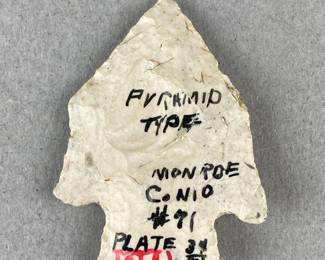 PYRAMID
TYPE
MONROE
CO. NIO
#91
PLATE 34